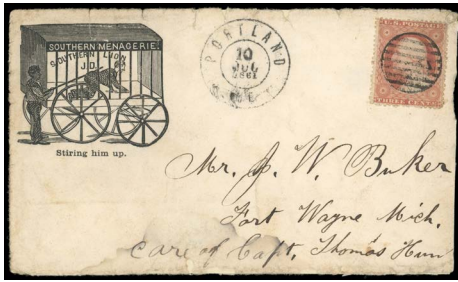 SOUTHERN MENAGERIE
SOUTHERN LION
J.D.
Stiring him up.
PORTLAND
10
JUL
1861
ME
U.S. POSTAGE
THREE CENTS
Mr. J. W. Buker
Fort Wayne Mich.
Care of Capt. Thomas Hun